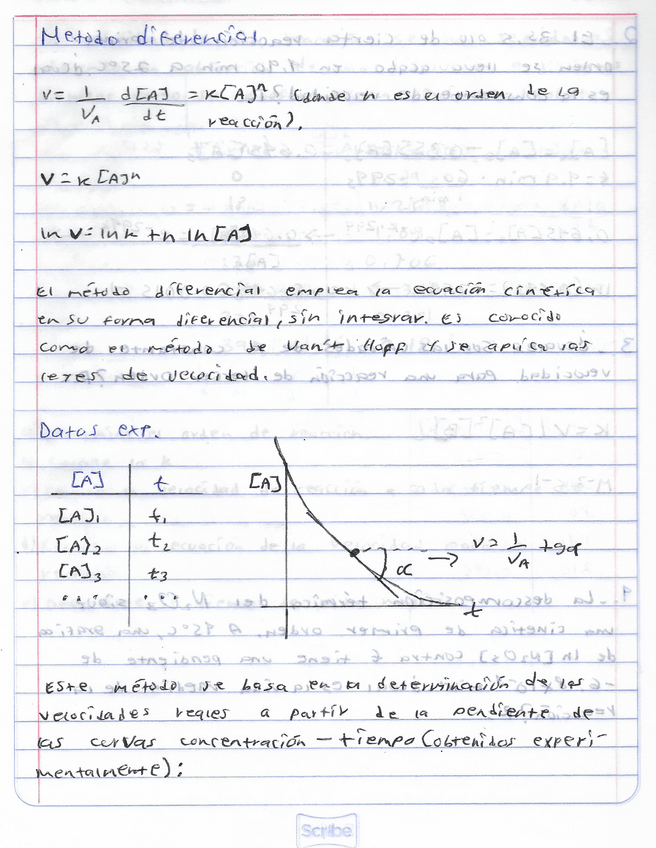 Metodo diferencial
v = 1/V_A d[A]/dt = k[A]^n (donde n es el orden de la
reacción).
v = k [A]^n
ln v = ln k + n ln [A]
El método diferencial emplea la ecuación cinética
en su forma diferencial, sin integrar. Es conocido
como el método de Van't Hoff y se aplica las
leyes de velocidad.
Datos exp.
[A] t
[A]1 t1
[A]2 t2
[A]3 t3
... ...
[A]
α → v = 1/V_A tgα
t
Este método se basa en la determinación de las
velocidades reales a partir de la pendiente de
las curvas concentración - tiempo (obtenidos experi-
mentalmente):
Scribe